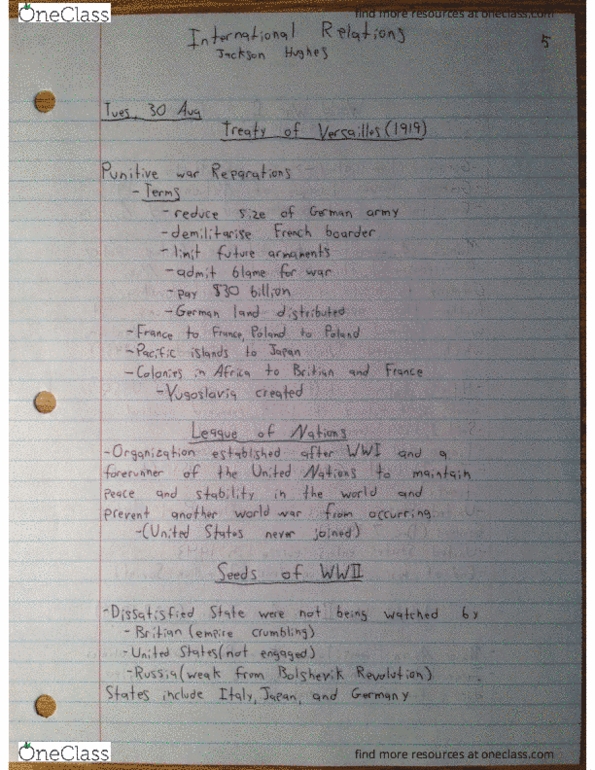 OneClass
find more resources at oneclass.com
International Relations
5
Jackson Hughes
Tues, 30 Aug
Treaty of Versailles (1919)
Punitive war Reparations
- Terms
- reduce size of German army
- demilitarise French boarder
- limit future armaments
- admit blame for war
- pay $30 billion
- German land distributed
- France to France, Poland to Poland
- Pacific islands to Japan
- Colonies in Africa to Britian and France
- Yugoslavia created
League of Nations
- Organization established after WWI and a
forerunner of the United Nations to maintain
peace and stability in the world and
prevent another world war from occurring
- (United States never joined)
Seeds of WWII
- Dissatisfied State were not being watched by
- Britian (empire crumbling)
- United States (not engaged)
- Russia (weak from Bolshevik Revolution)
States include Italy, Japan, and Germany
OneClass
find more resources at oneclass.com